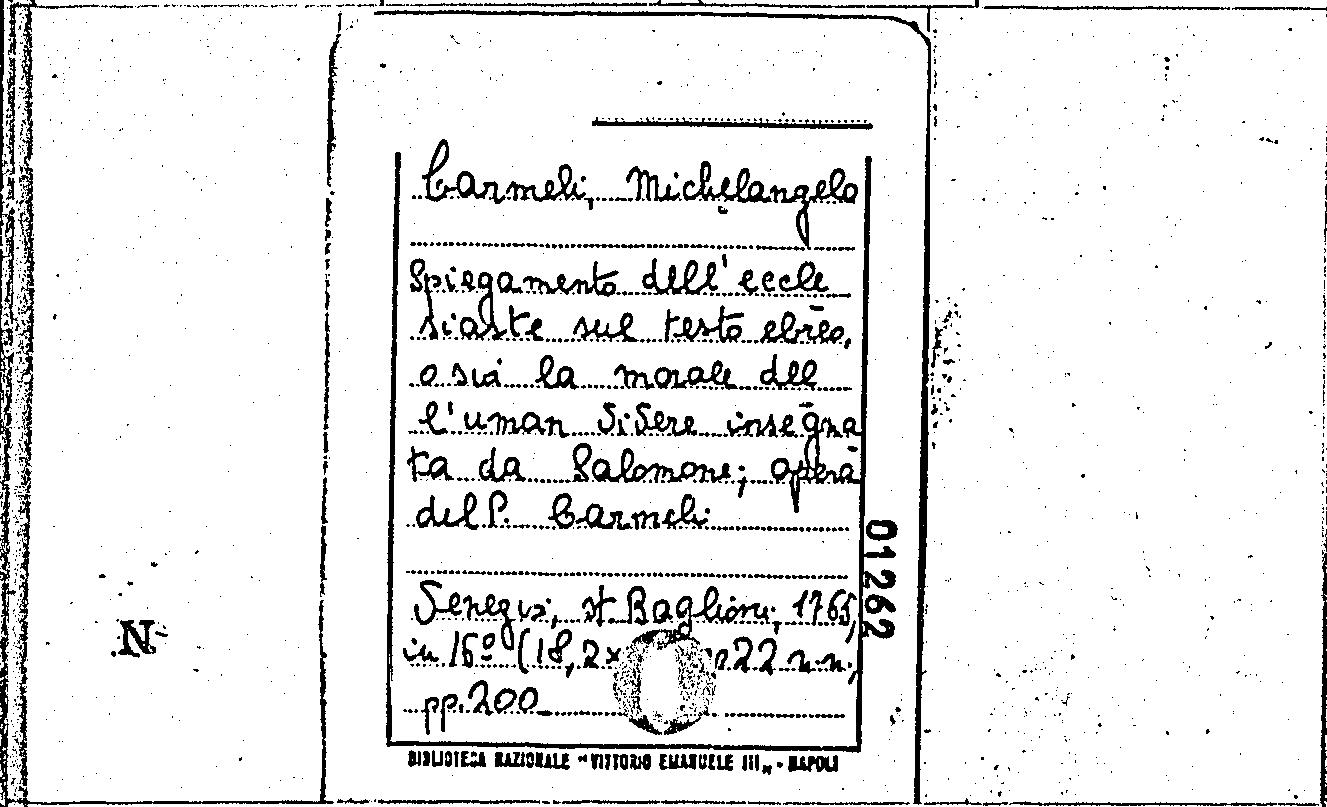 Carmeli, Michelangelo
Spiegamento dell'eccle
siaste sul testo ebreo,
o sia la morale del
l'uman vivere insegna
ta da Salomone; opera
del P. Carmeli
Venezia, st. Baglioni, 1765,
in 16º (18,2x 22 n.n.,
pp. 200
BIBLIOTECA NAZIONALE "VITTORIO EMANUELE III" - NAPOLI
01262
N